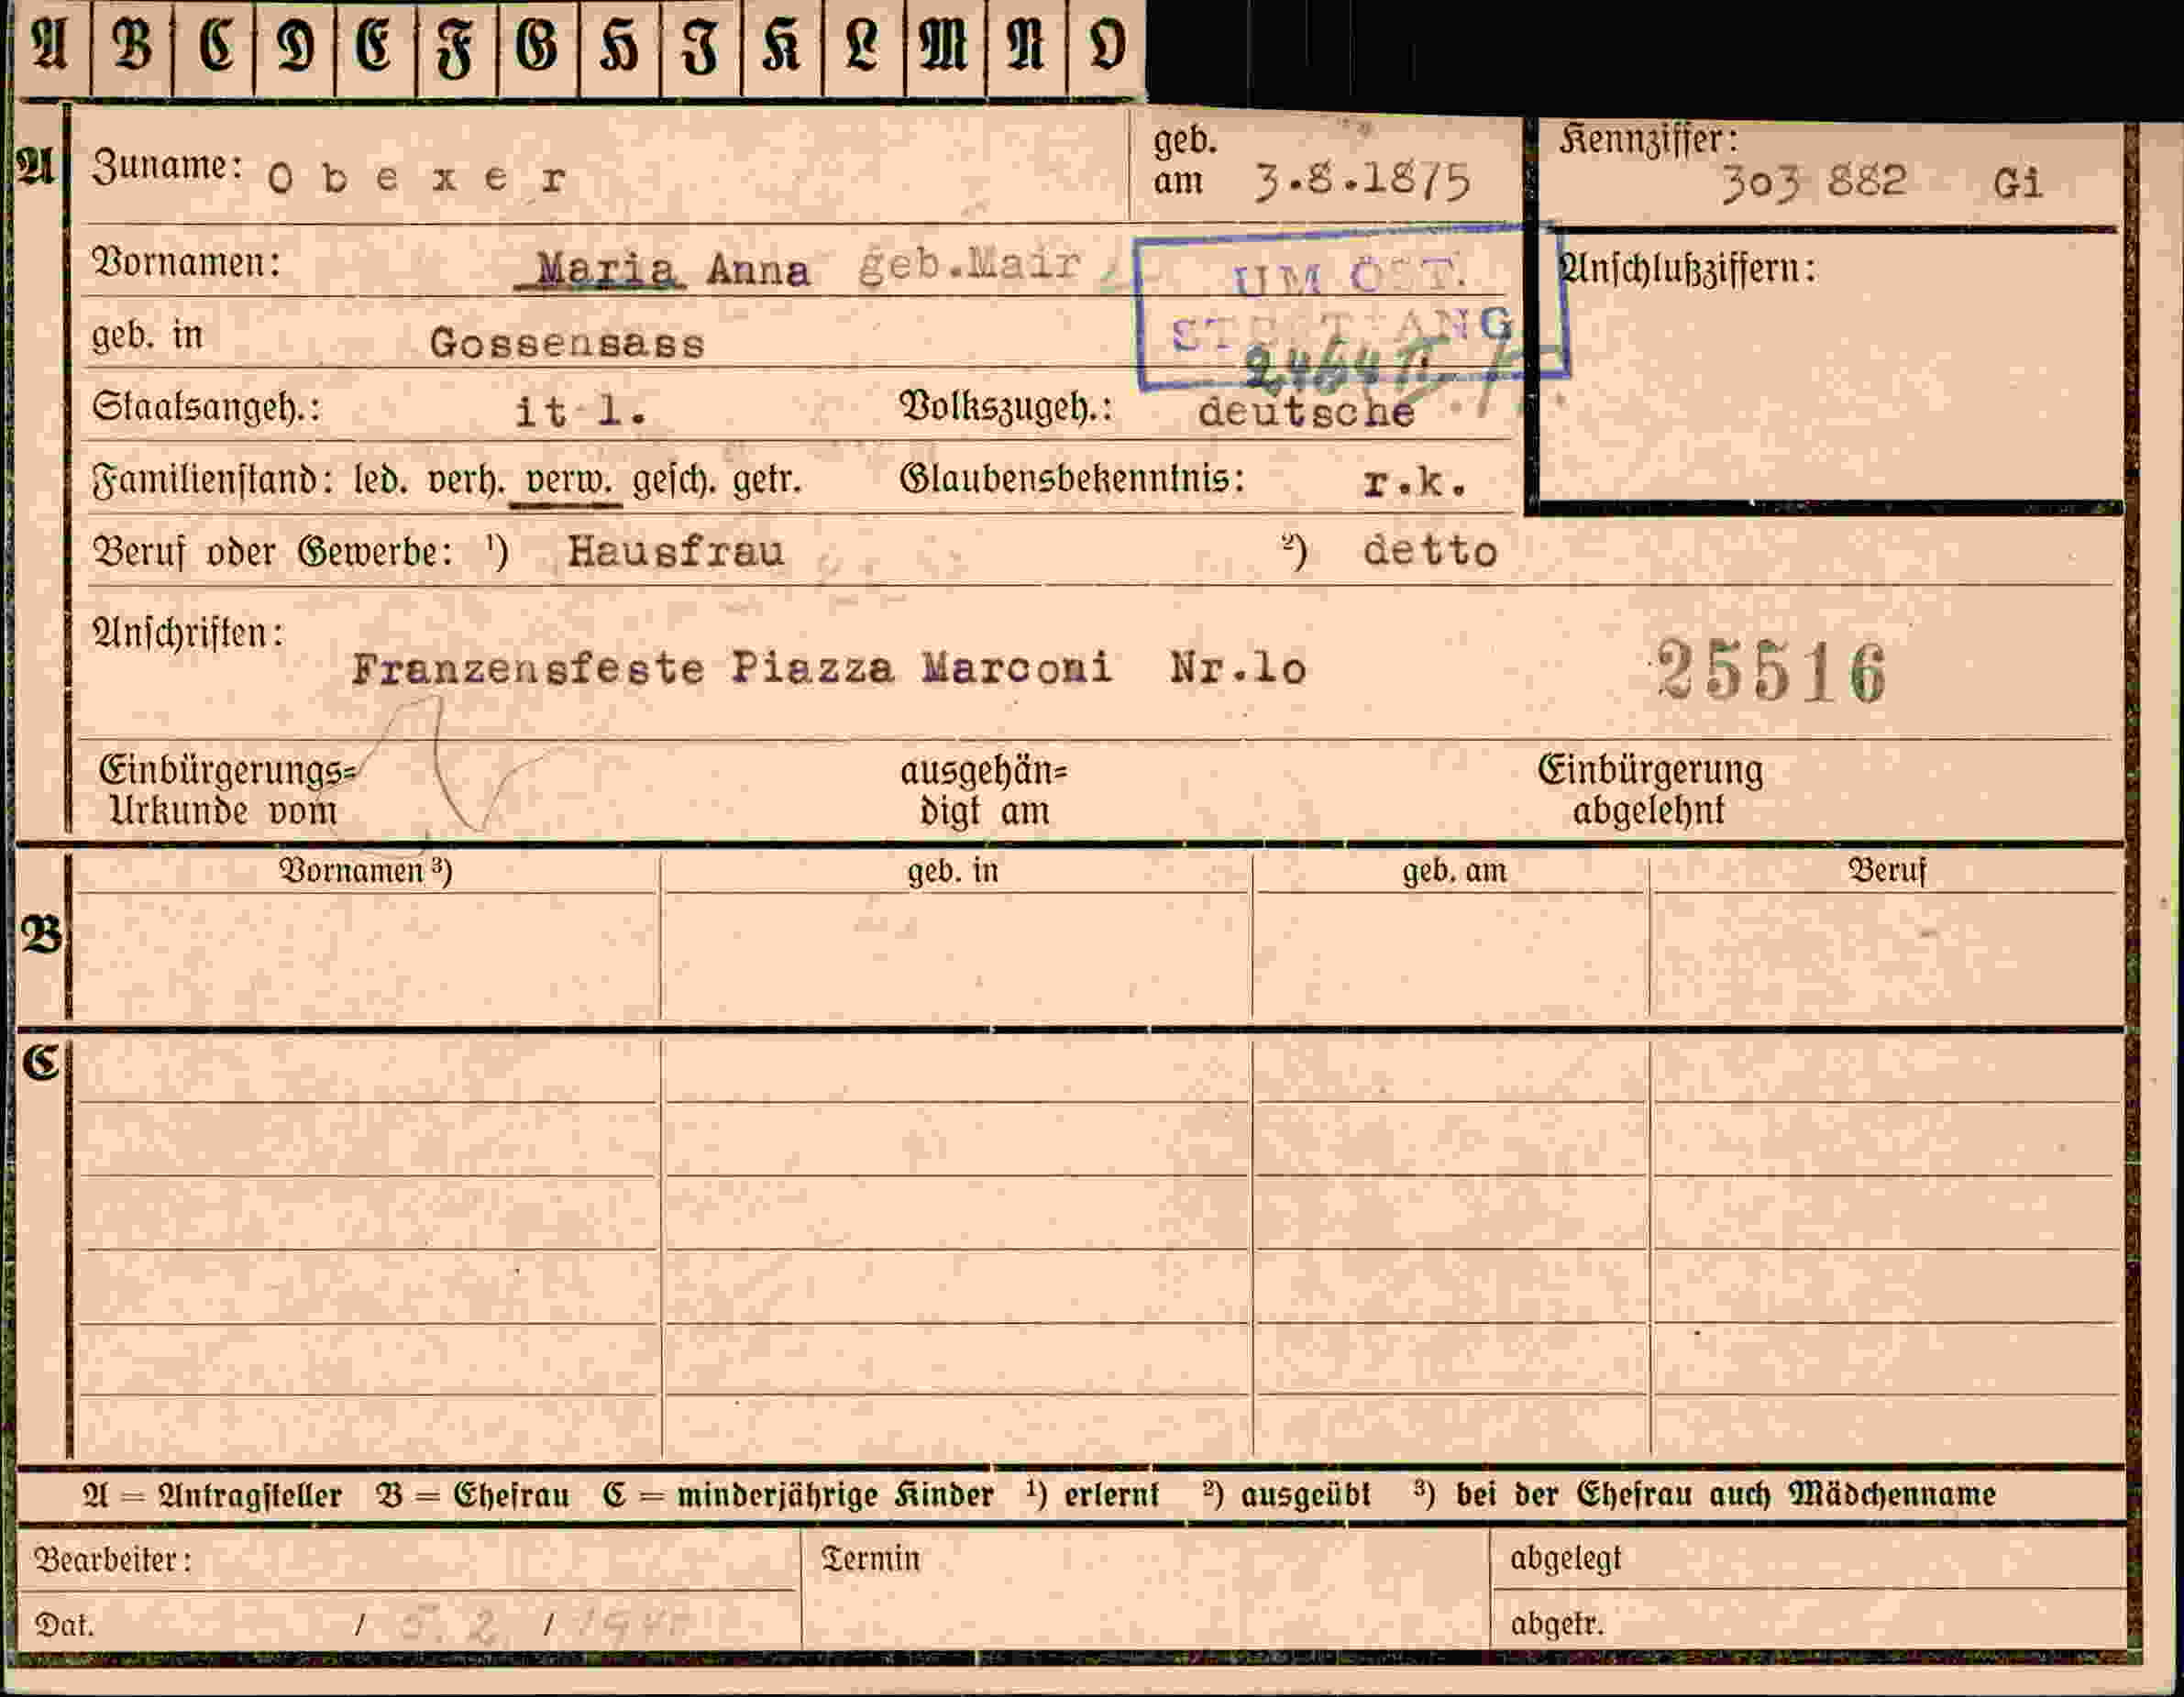 A B C D E F G H J K L M N O
A Zuname: Obexer geb. am 3.8.1875 Kennziffer: 303 882 Gi
Vornamen: Maria Anna geb.Mair Anschlußziffern:
UM
geb. in Gossensass
Staatsangeh.: it l. Volkszugeh.: deutsche
Familienstand: led. verh. verw. gesch. getr. Glaubensbekenntnis: r.k.
Beruf oder Gewerbe: ¹) Hausfrau ²) detto
Anschriften:
Franzensfeste Piazza Marconi Nr.lo 25516
Einbürgerungs= ausgehän= Einbürgerung
Urkunde vom digt am abgelehnt
Vornamen ³) geb. in geb. am Beruf
B
C
A = Antragsteller B = Ehefrau C = minderjährige Kinder ¹) erlernt ²) ausgeübt ³) bei der Ehefrau auch Mädchenname
Bearbeiter: Termin abgelegt
Dat. / 5.2. / abgetr.